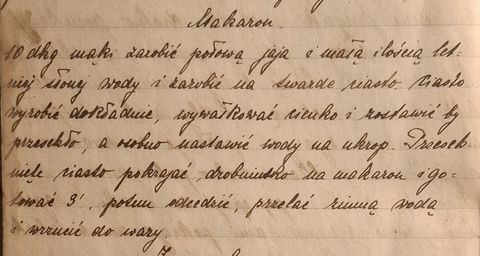 Makaron.
10 dkg mąki zarobić połową jaja i małą ilością let-
niej słonej wody i zarobić na twarde ciasto. Ciasto
wyrobić dokładnie, wywałkować cienko i zostawić by
przeschło, a osobno nastawić wody na ukrop. Przesch-
nięte ciasto pokrajać drobniutko na makaron i go-
tować 3', potem odcedzić, przelać zimną wodą
i wrzucić do wazy.